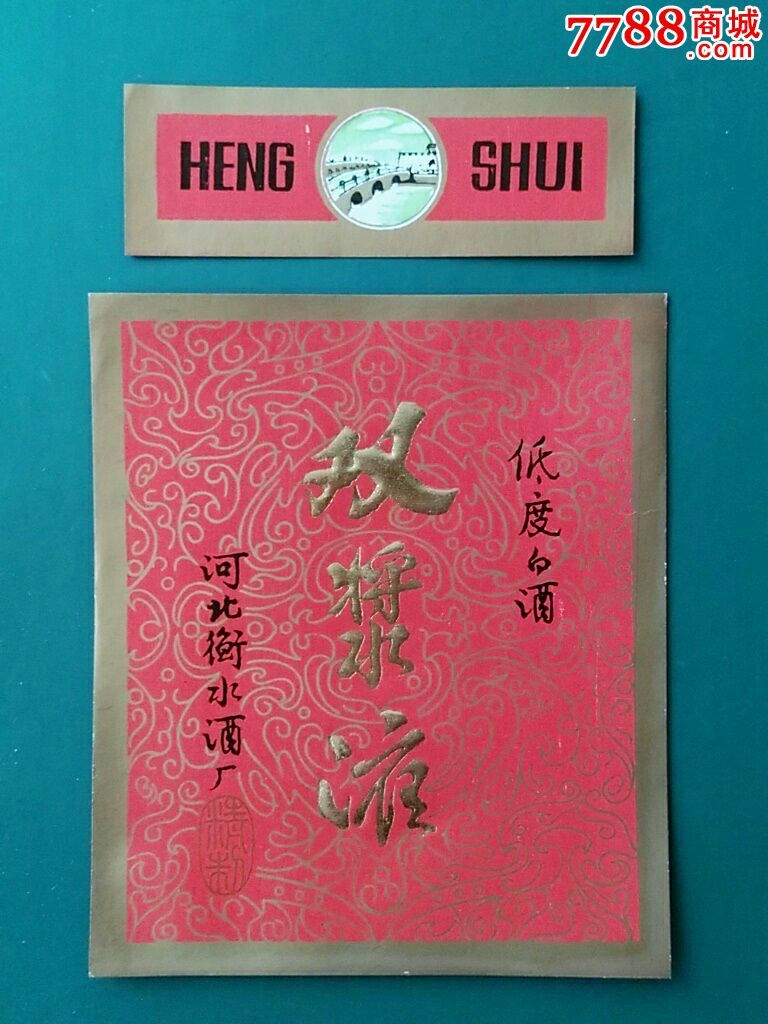 7788商城
.com
HENG SHUI
双漿液
低度白酒
河北衡水酒厂
精制